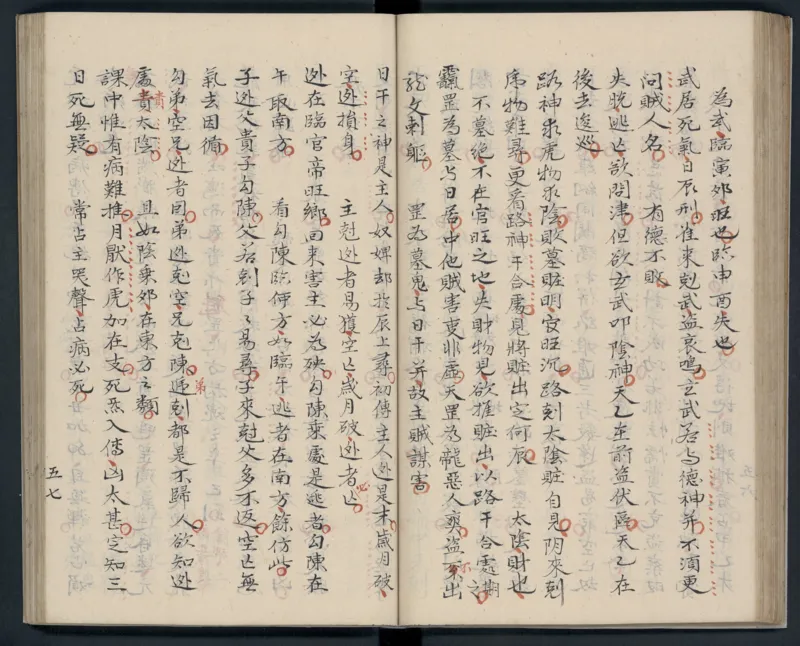 為武臨寅夘旺也臨申酉失也
武居死氣日辰刑准來剋武盗哀鳴玄武若与德神并不須更
问賊人名　有德不敗
失脫逃亡欲問津但欲玄武叩陰神天乙在前盗伏匿天乙在
後去逡巡
路神求虎物求陰敗墓賍明安旺沉路剋太陰賍自見阴來剋
序物難尋更看路神干合處見將賍出定何辰　太陰財也
不墓絕不在官旺之地失財物見欲推賍出以路干合處期之
罡為墓与日居中他賊害衷非虛天罡為龍惡人痕盗不出
龍文刺軀　罡為墓鬼与日干并故主賊謀害
日干之神是主人奴婢却於辰上尋初傳主人逃是末歲月破
空逃損身　主剋逃者易獲空亡歲月破逃者必亡
逃在臨官帝旺鄉回来害主必為殃勾陳乗處是逃者勾陳在
午取南方　看勾陳臨何方如臨午逃者在南方餘仿此
子逃父貴子勾陳父若剋子々易尋子來尅父多不返空亡無
氣去因循
勾弟空兄逃者因弟逃剋空兄克陳遞剋都是不歸人欲知逃
處責太陰　且如陰乗夘在東方之類
課中惟有病難推月厭作虎加在支死炁入傳凶太甚定知三
日死無疑　常占主哭聲占病必死
五七